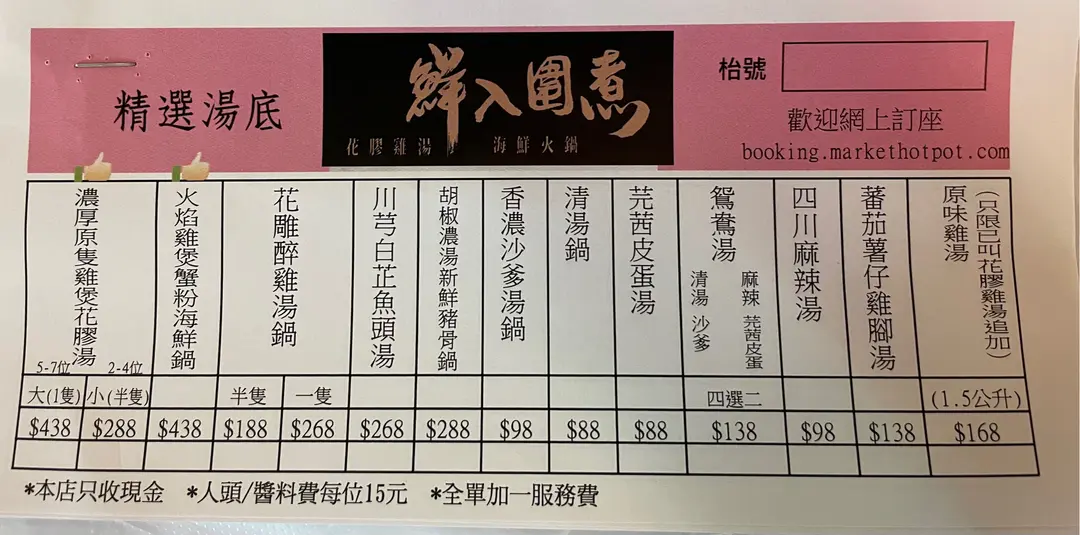 精選湯底
鮮入圍煮
花膠雞湯 海鮮火鍋
枱號
歡迎網上訂座
booking.markethotpot.com
濃厚原隻雞煲花膠湯
5-7位 2-4位
大(1隻) 小(半隻)
$438 $288
火焰雞煲蟹粉海鮮鍋
$438
花雕醉雞湯鍋
半隻 一隻
$188 $268
川芎白芷魚頭湯
$268
胡椒濃湯新鮮豬骨鍋
$288
香濃沙爹湯鍋
$98
清湯鍋
$88
芫茜皮蛋湯
$88
鴛鴦湯
麻辣 芫茜皮蛋
清湯 沙爹
四選二
$138
四川麻辣湯
$98
蕃茄薯仔雞腳湯
$138
原味雞湯
(只限已叫花膠雞湯追加)
(1.5公升)
$168
*本店只收現金 *人頭/醬料費每位15元 *全單加一服務費